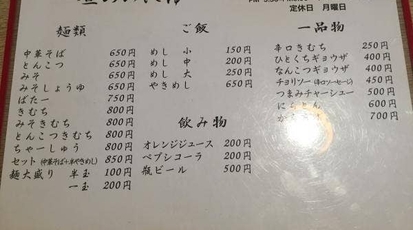 定休日 月曜日
麺類
中華そば 650円
とんこつ 650円
みそ 650円
みそしょうゆ 650円
ばたー 750円
きむち 800円
みそきむち 800円
とんこつきむち 800円
ちゃーしゅう 800円
セット(中華そば+半やきめし) 850円
麺大盛り 半玉 100円
一玉 200円
ご飯
めし 小 150円
めし 中 200円
めし 大 250円
やきめし 650円
飲み物
オレンジジュース 200円
ペプシコーラ 200円
瓶ビール 500円
一品物
辛口きむち 250円
ひとくちギョウザ 400円
なんこつギョウザ 400円
チョリソー(辛口ソーセージ) 450円
つまみチャーシュー 500円
600円
700円